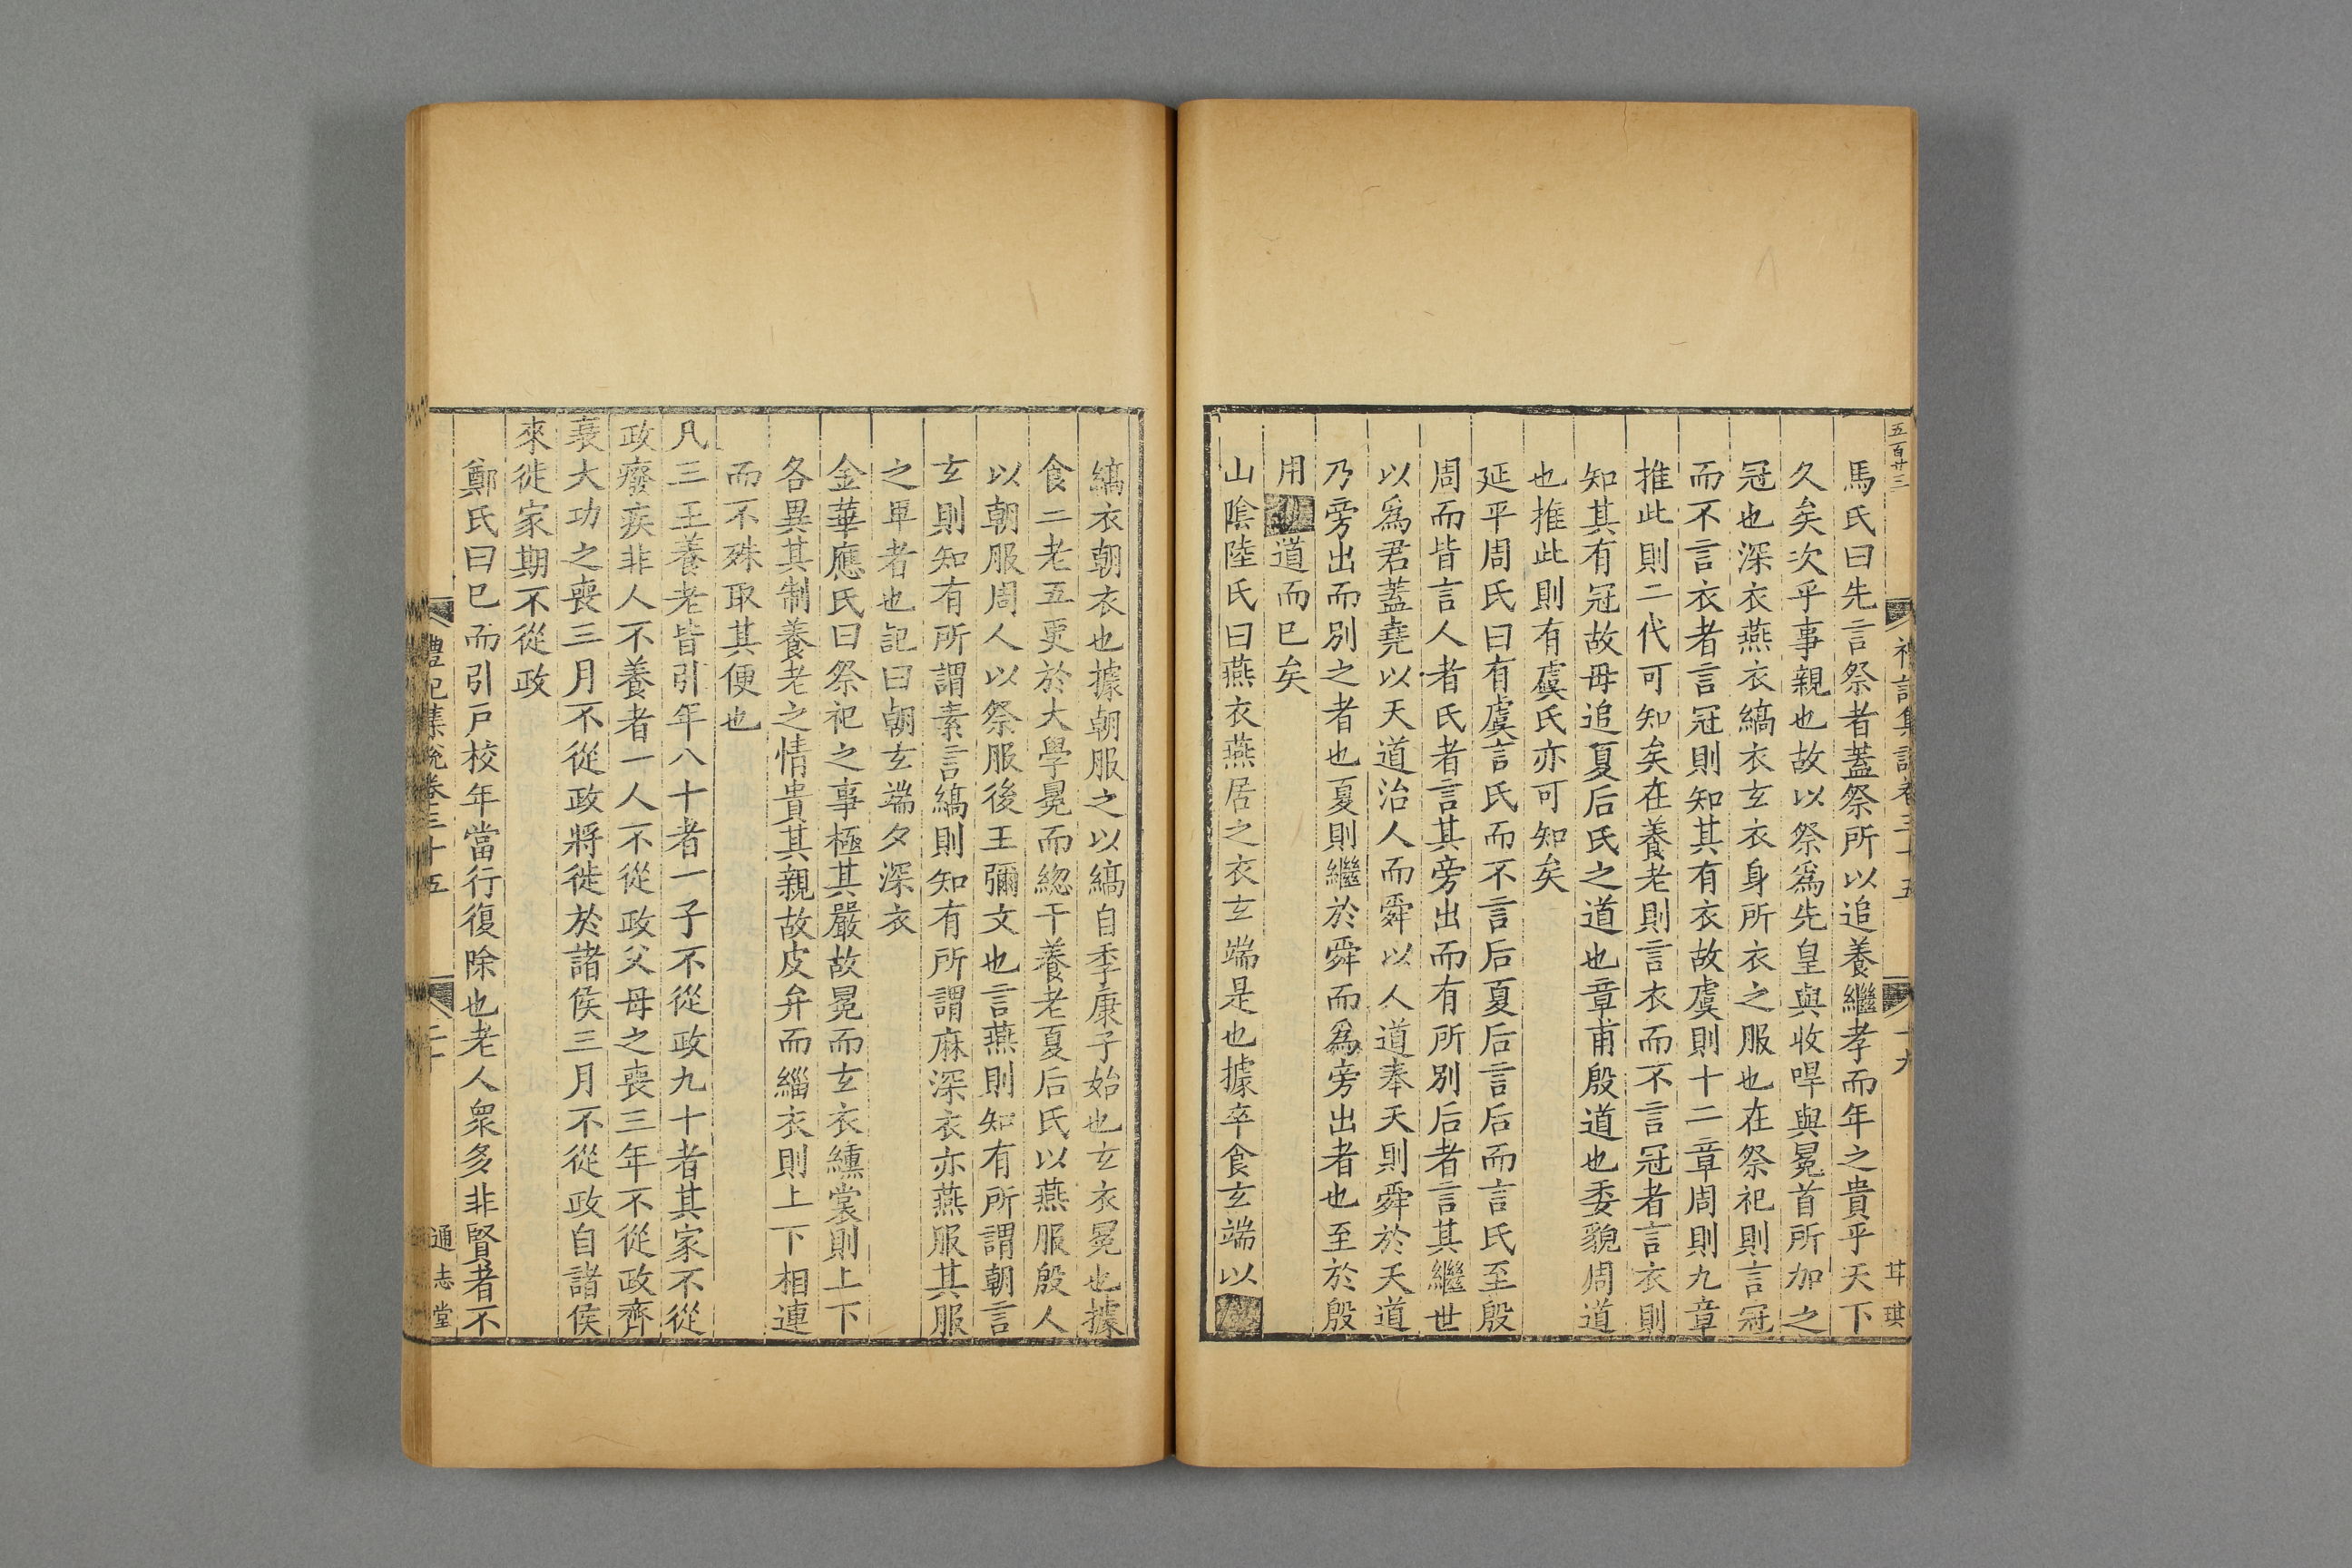 五百廿三
禮記集說卷三十五
十九
廿
琪
馬氏曰先言祭者蓋祭所以追養繼孝而年之貴乎天下
久矣次乎事親也故以祭爲先皇與收哻與冕首所加之
冠也深衣燕衣縞衣玄衣身所衣之服也在祭祀則言冠
而不言衣者言冠則知其有衣故虞則十二章周則九章
推此則二代可知矣在養老則言衣而不言冠者言衣則
知其有冠故毋追夏后氏之道也章甫殷道也委貌周道
也推此則有虞氏亦可知矣
延平周氏曰有虞言氏而不言后夏后言后而言氏至殷
周而皆言人者氏者言其旁出而有所別后者言其繼世
以爲君蓋堯以天道治人而舜以人道奉天則舜於天道
乃旁出而別之者也夏則繼於舜而爲旁出者也至於殷
用道而巳矣
山陰陸氏曰燕衣燕居之衣玄端是也據卒食玄端以
縞衣朝衣也據朝服之以縞自季康子始也玄衣冕也據
食二老五更於大學冕而緫干養老夏后氏以燕服殷人
以朝服周人以祭服後王彌文也言燕則知有所謂朝言
玄則知有所謂素言縞則知有所謂麻深衣亦燕服其服
之单者也記曰朝玄端夕深衣
金華應氏曰祭祀之事極其嚴故冕而玄衣纁裳則上下
各異其制養老之情貴其親故皮弁而緇衣則上下相連
而不殊取其便也
凡三王養老皆引年八十者一子不從政九十者其家不從
政癈疾非人不養者一人不從政父母之喪三年不從政齊
衰大功之喪三月不從政將徙於諸侯三月不從政自諸侯
來徙家期不從政
鄭氏曰巳而引戸校年當行復除也老人衆多非賢者不
禮記集說卷三十五
二十
通志堂